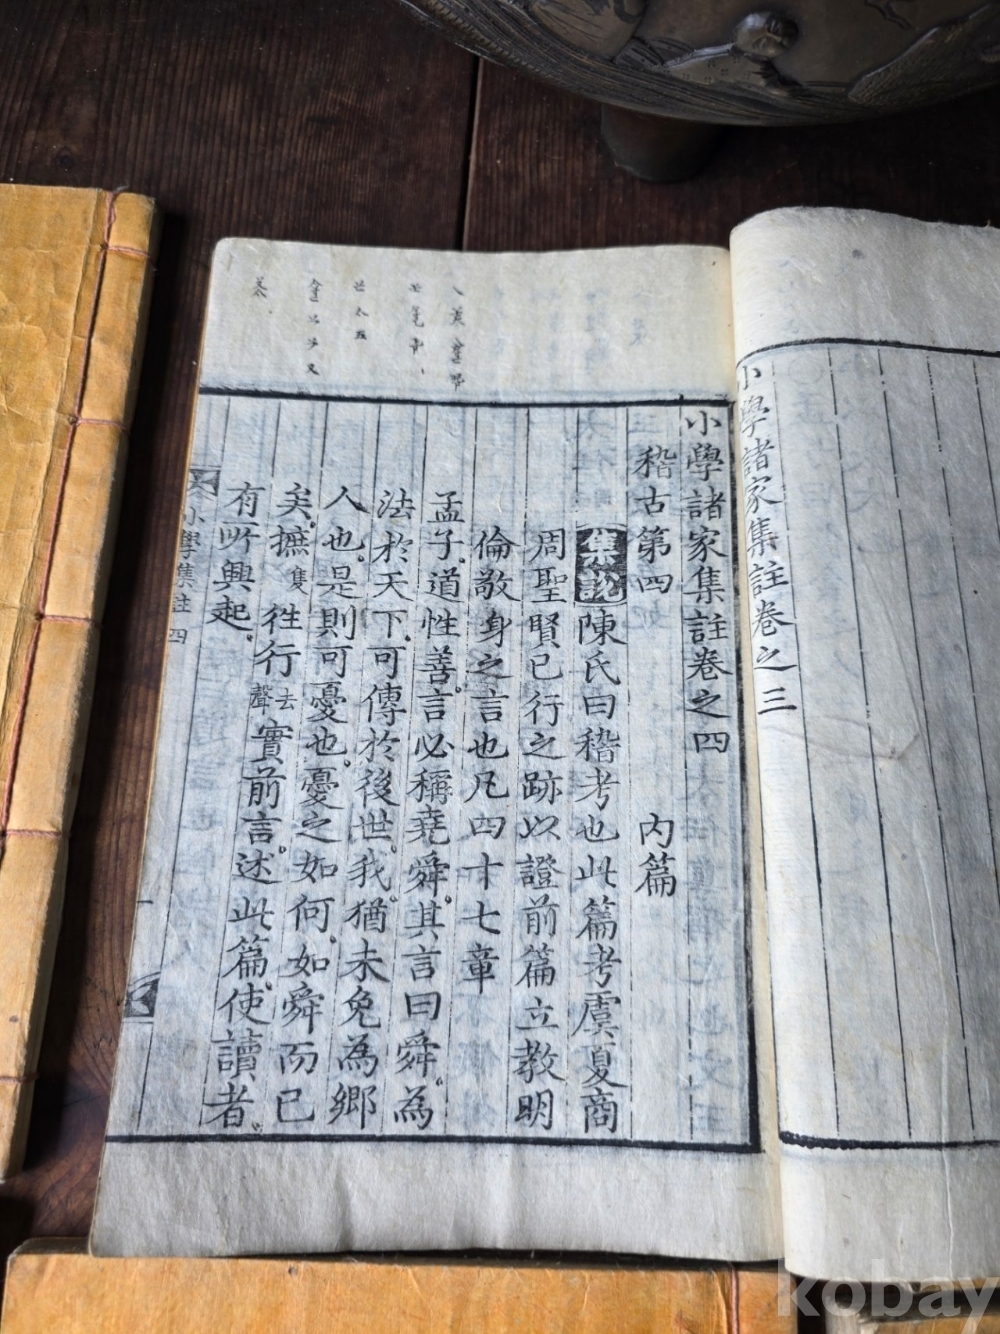 小學諸家集註卷之三
小學諸家集註卷之四
稽古第四 內篇
集說 陳氏曰稽考也此篇考虞夏商
周聖賢已行之跡以證前篇立教明
倫敬身之言也凡四十七章
孟子道性善言必稱堯舜其言曰舜為
法於天下可傳於後世我猶未免為鄉
人也是則可憂也憂之如何如舜而已
矣摭集徃行去聲實前言述此篇使讀者
有所興起
小學集註 四
kobay